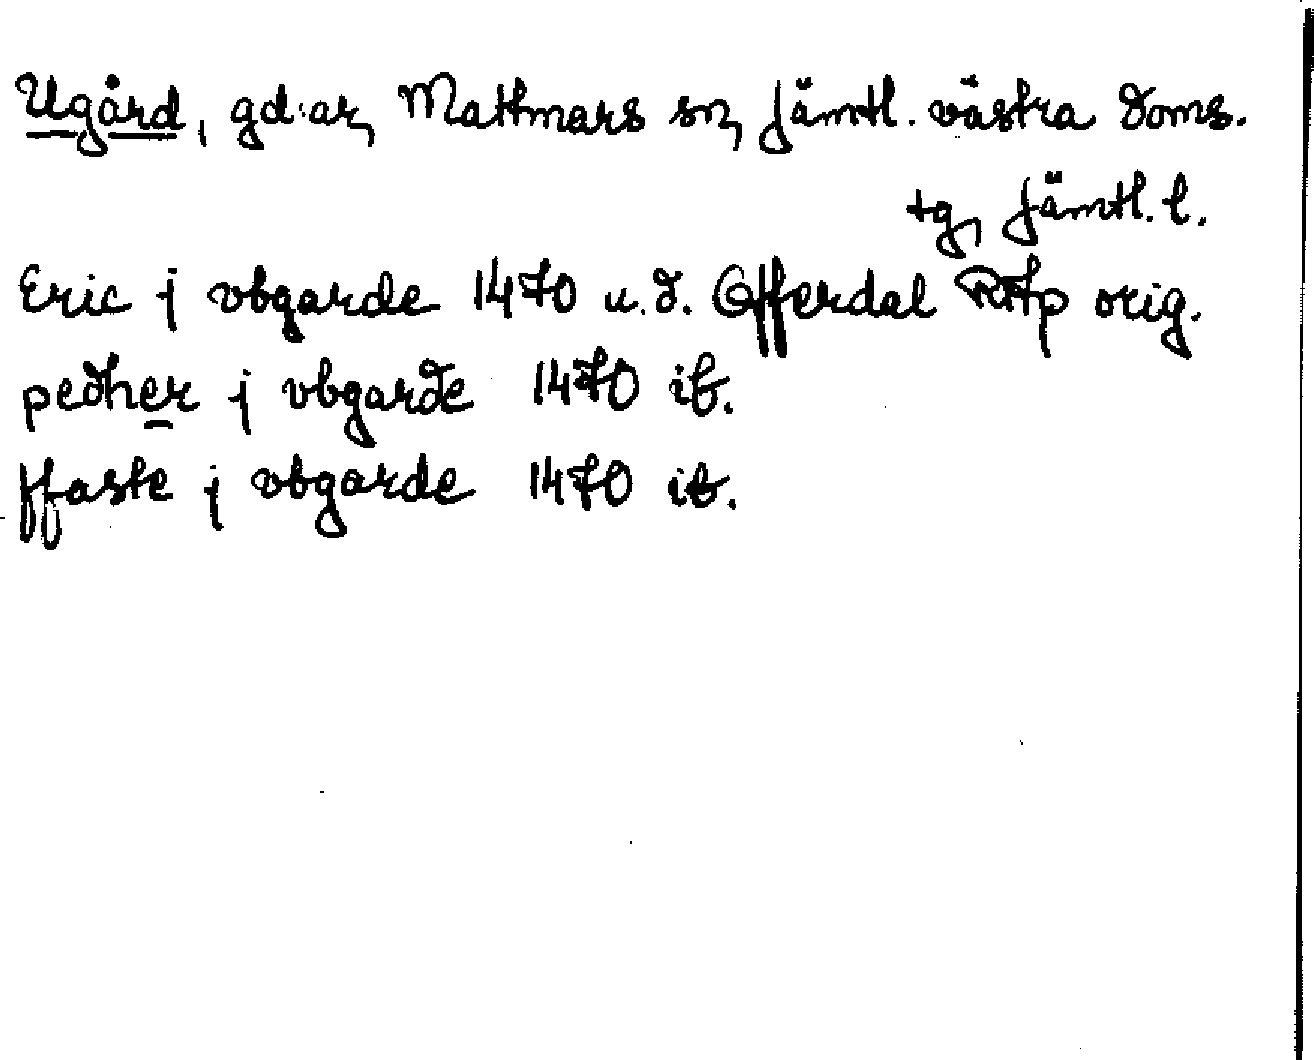 Ugård, gd:ar, Mattmars sn, Jämtl. västra doms.
tg, Jämtl. l.
Eric j vbgarde 1470 u.d. Offerdal RAp orig.
pedher j vbgarde 1470 ib.
ffaste j vbgarde 1470 ib.